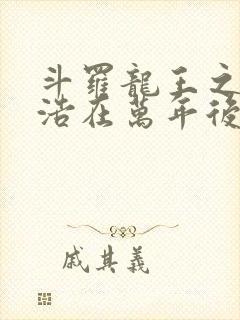 斗羅龍王之
浩在萬年後
戚其義